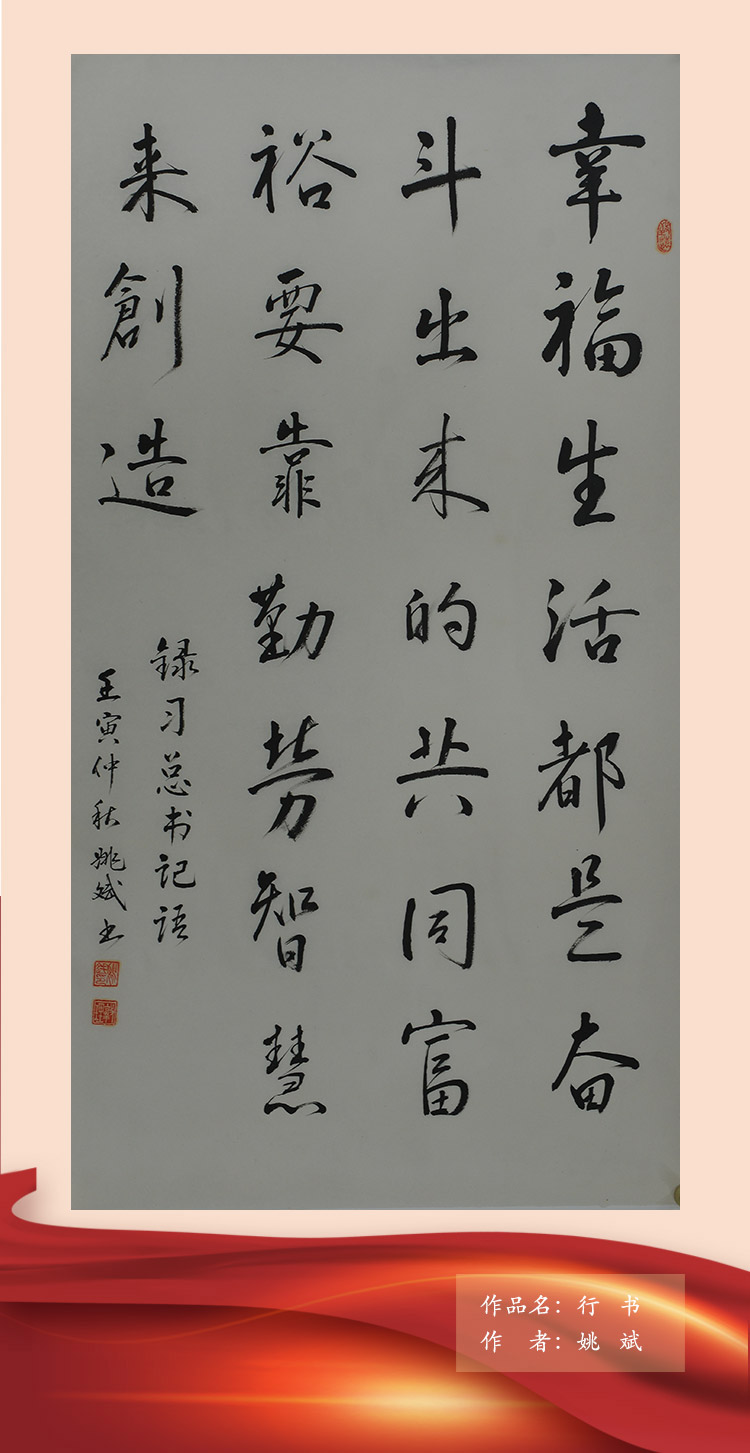 幸福生活都是奋
斗出来的共同富
裕要靠勤劳智慧
来創造
録习总书记语
壬寅仲秋姚斌书
作品名：行 书
作 者：姚 斌